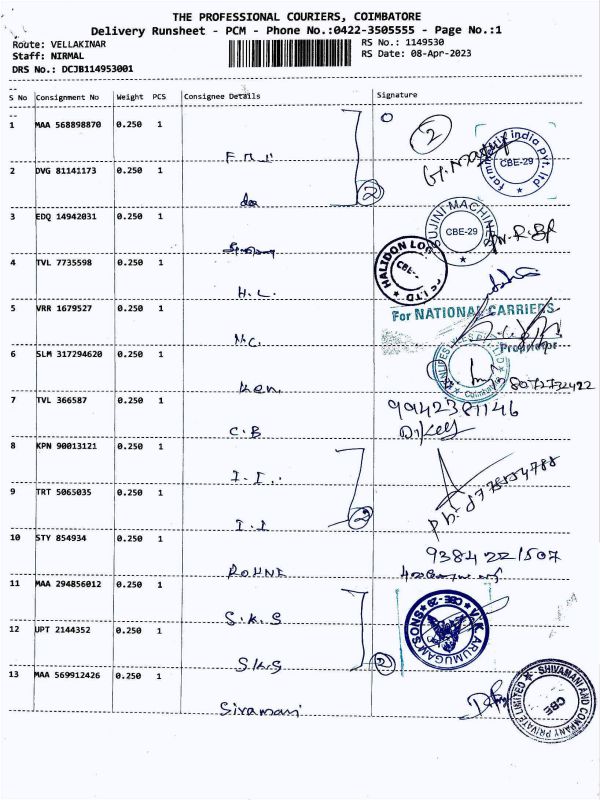 THE PROFESSIONAL COURIERS, COIMBATORE
Delivery Runsheet - PCM - Phone No.:0422-3505555 - Page No.:1
Route: VELLAKINAR
RS No.: 1149530
Staff: NIRMAL
RS Date: 08-Apr-2023
DRS No.: DCJB114953001
S No Consignment No Weight PCS Consignee Details Signature
1 MAA 568898870 0.250 1
2
farmmatrix india pvt. ltd
CBE-29
2 DVG 81141173 0.250 1
do
2
3 EDQ 14942031 0.250 1
SUJINI MACHINES
CBE-29
4 TVL 7735598 0.250 1 H.L.
5 VRR 1679527 0.250 1 N.C.
For NATIONAL CARRIERS
Proprietor
6 SLM 317294620 0.250 1 Ken.
8072732422
7 TVL 366587 0.250 1 C.B
9942381146
8 KPN 90013121 0.250 1 I.I.
9 TRT 5065035 0.250 1 I.I
2
10 STY 854934 0.250 1
9384221507
11 MAA 294856012 0.250 1 S.K.S
V.K. ARUMUGAM SONS
CBE-29
12 UPT 2144352 0.250 1 S.K.S
2
13 MAA 569912426 0.250 1 Sivamani
SHIVAMANI AND COMPANY PRIVATE LIMITED
CBE